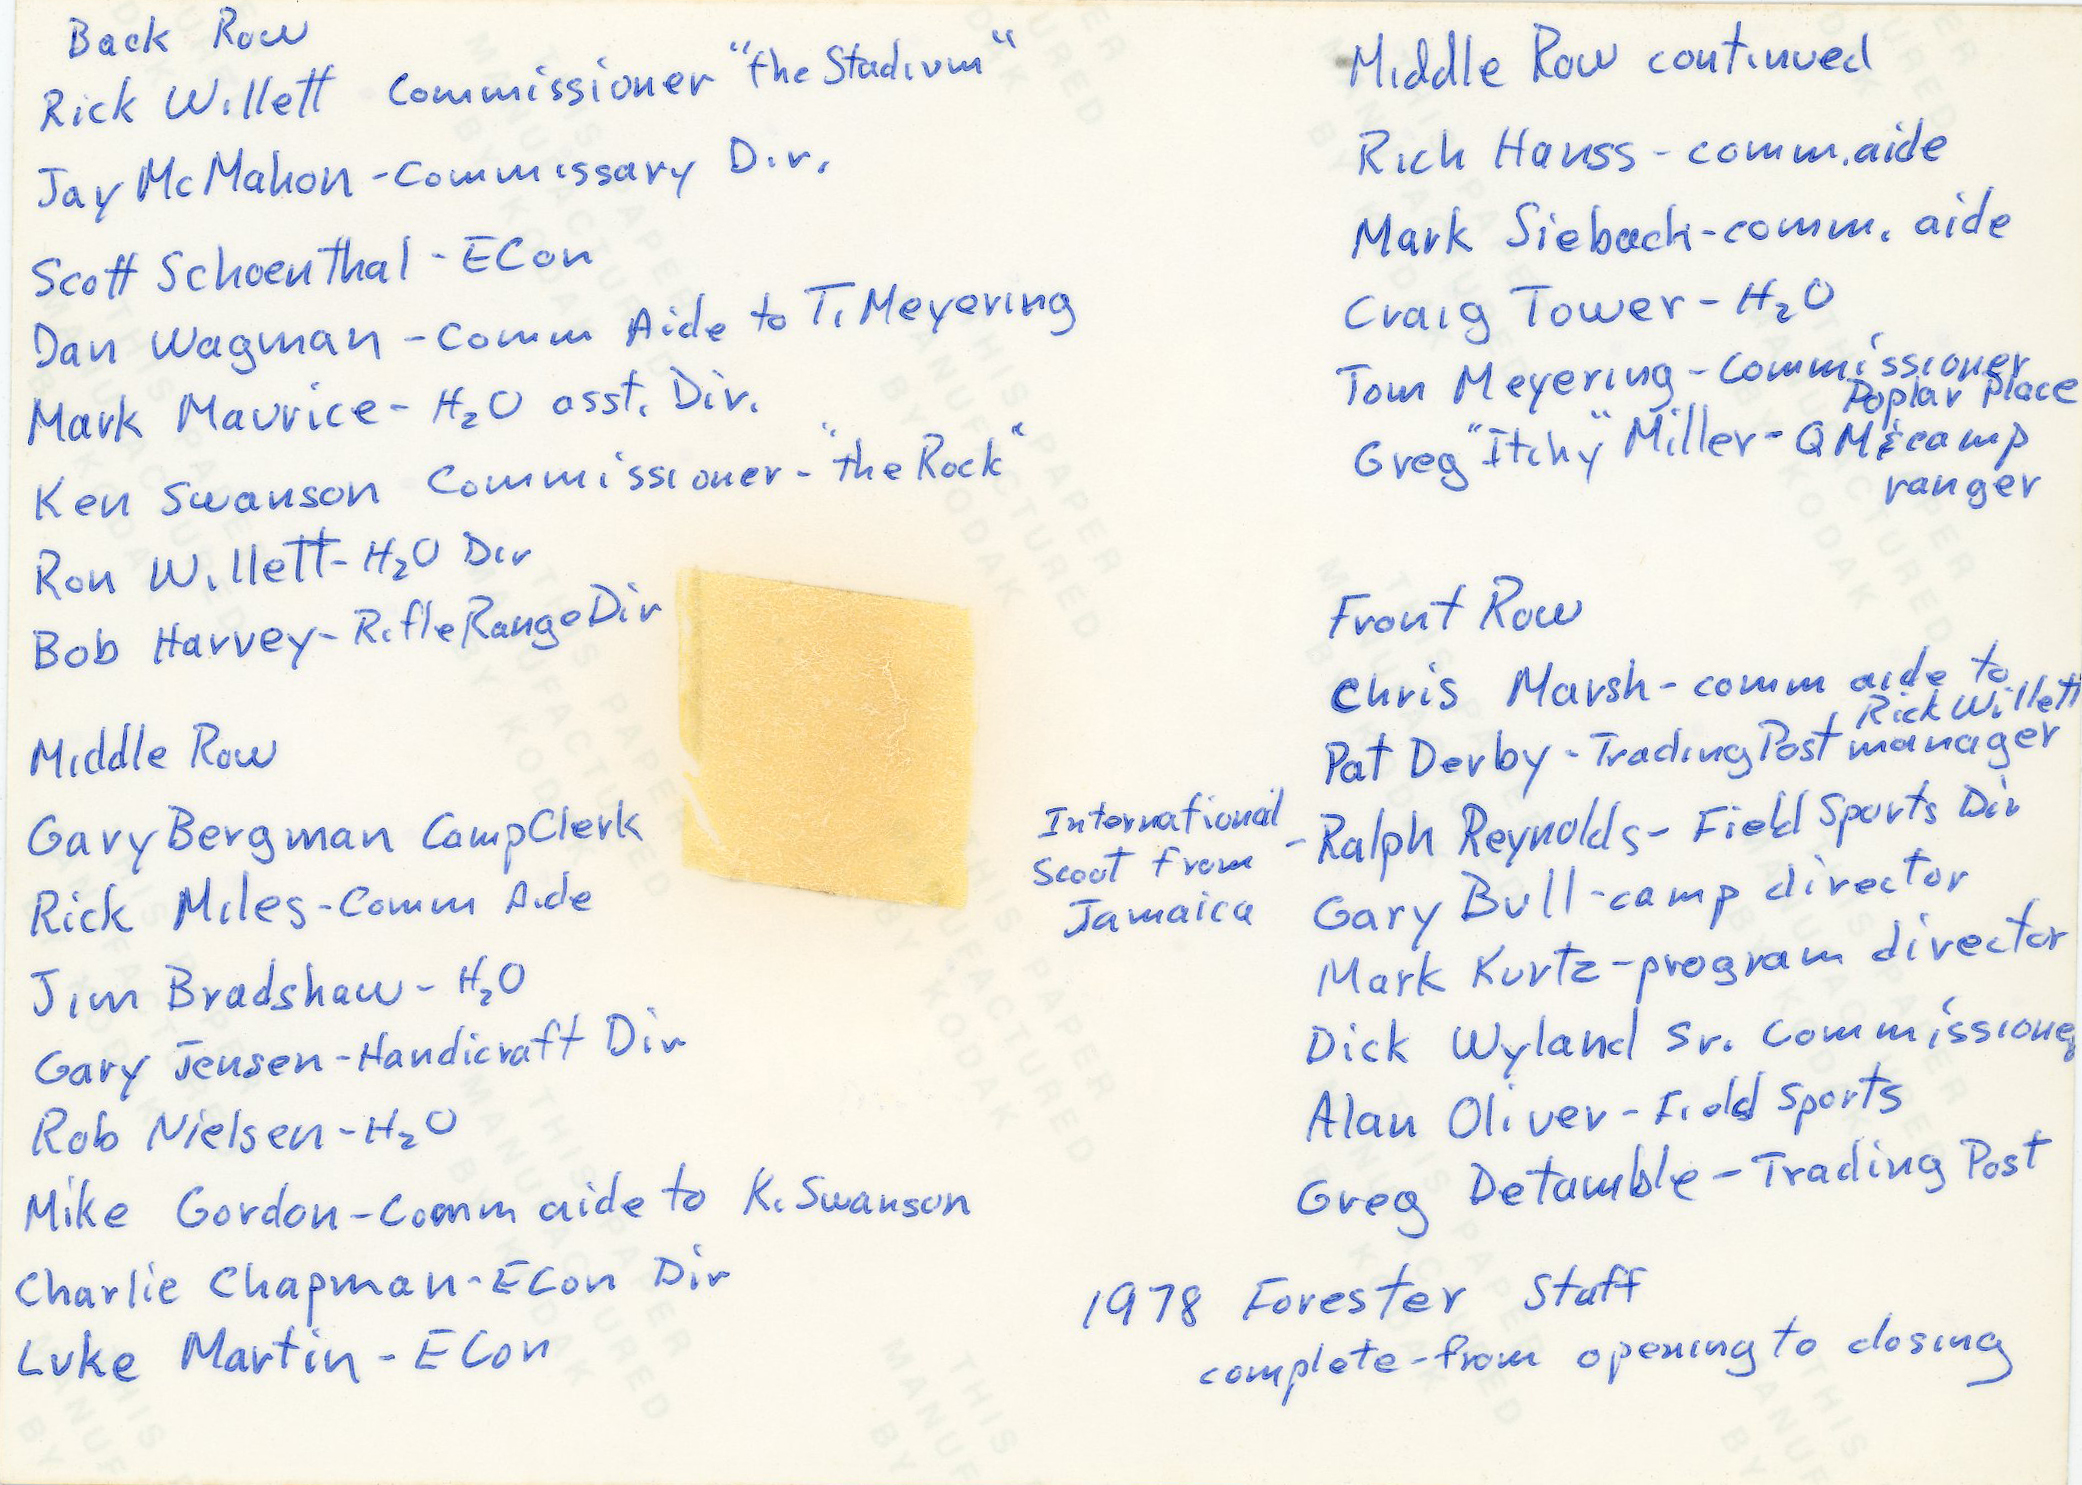 Back Row
Rick Willett Commissioner "the Stadium"
Jay McMahon - Commissary Dir.
Scott Schoenthal - ECon
Dan Wagman - Comm Aide to T. Meyering
Mark Maurice - H₂O asst. Dir.
Ken Swanson Commissioner - "the Rock"
Ron Willett - H₂O Dir
Bob Harvey - Rifle Range Dir
Middle Row
Gary Bergman Camp Clerk
Rick Miles - Comm Aide
Jim Bradshaw - H₂O
Gary Jensen - Handicraft Dir
Rob Nielsen - H₂O
Mike Gordon - Comm aide to K. Swanson
Charlie Chapman - ECon Dir
Luke Martin - ECon
Middle Row continued
Rich Hauss - comm. aide
Mark Siebach - comm. aide
Craig Tower - H₂O
Tom Meyering - Commissioner
Poplar Place
Greg "Itchy" Miller - QM & camp
ranger
Front Row
Chris Marsh - comm aide to
Rick Willett
Pat Derby - Trading Post manager
International
Scout from
Jamaica
- Ralph Reynolds - Field Sports Dir
Gary Bull - camp director
Mark Kurtz - program director
Dick Wyland Sr. Commissioner
Alan Oliver - Field Sports
Greg Detamble - Trading Post
1978 Forester Staff
complete - from opening to closing
THIS PAPER
MANUFACTURED
BY KODAK